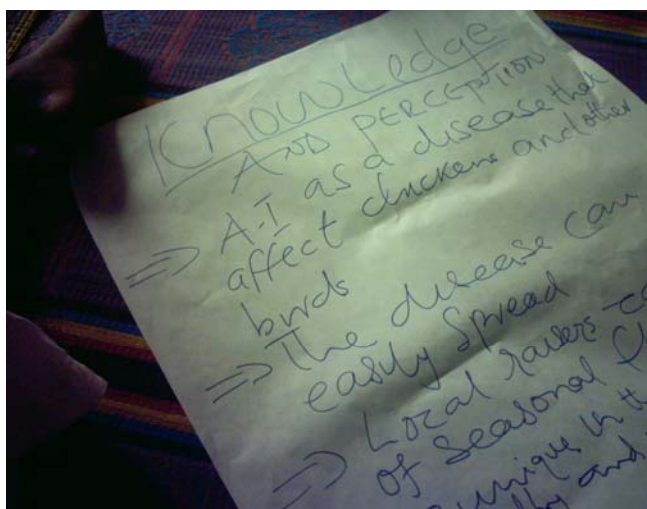 Knowledge
AND PERCEPTION
⇒ A.I as a disease that
affect chickens and other
birds
⇒ The disease can
easily spread
⇒ Local raisers
of seasonal
unique in
and